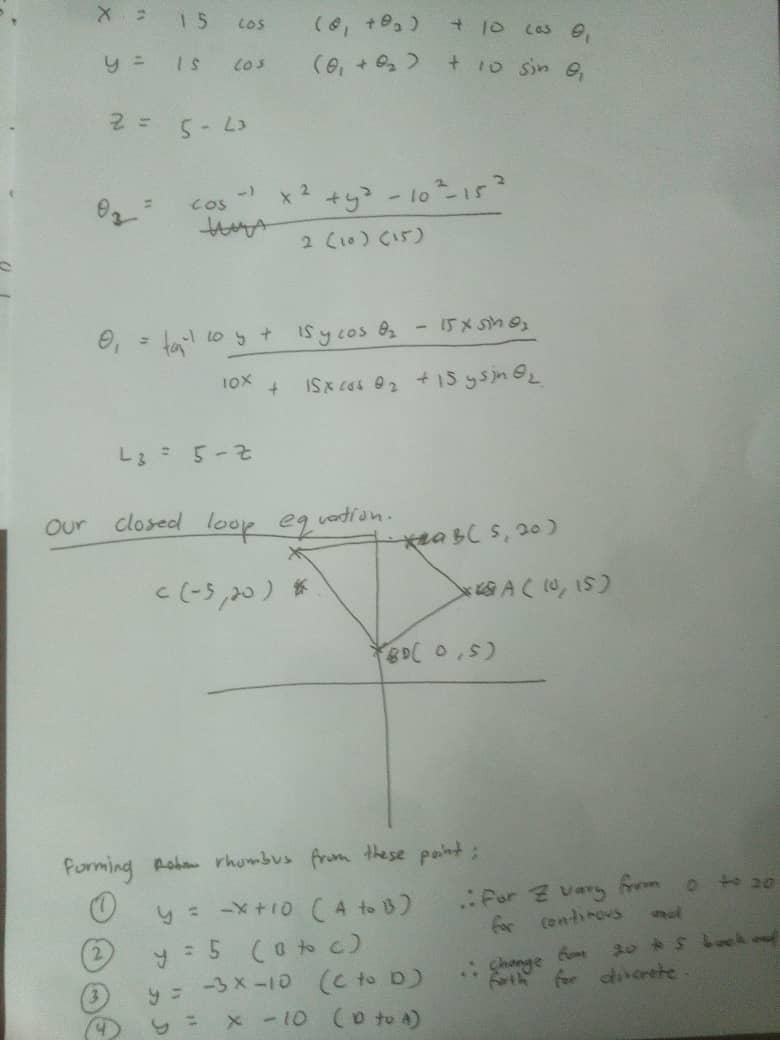 x = 15 cos (θ₁ + θ₂) + 10 cos θ₁
y = 15 cos (θ₁ + θ₂) + 10 sin θ₁
Z = 5 - L3
θ₂ = cos⁻¹ x² + y² - 10² - 15²
2 (10) (15)
θ₁ = tan⁻¹ 10 y + 15 y cos θ₂ - 15 x sin θ₂
10x + 15 x cos θ₂ + 15 y sin θ₂
L3 = 5 - Z
Our closed loop equation.
B ( 5, 20 )
C (-5, 20 )
A ( 10, 15 )
D ( 0, 5 )
Forming rhombus from these point ;
① y = -x+10 ( A to B )
∴ For Z vary from 0 to 20
for continous and
② y = 5 ( B to C )
∴ change from 20 to 5 back and
forth for discrete.
③ y = -3x -10 ( C to D )
④ y = x - 10 ( D to A )